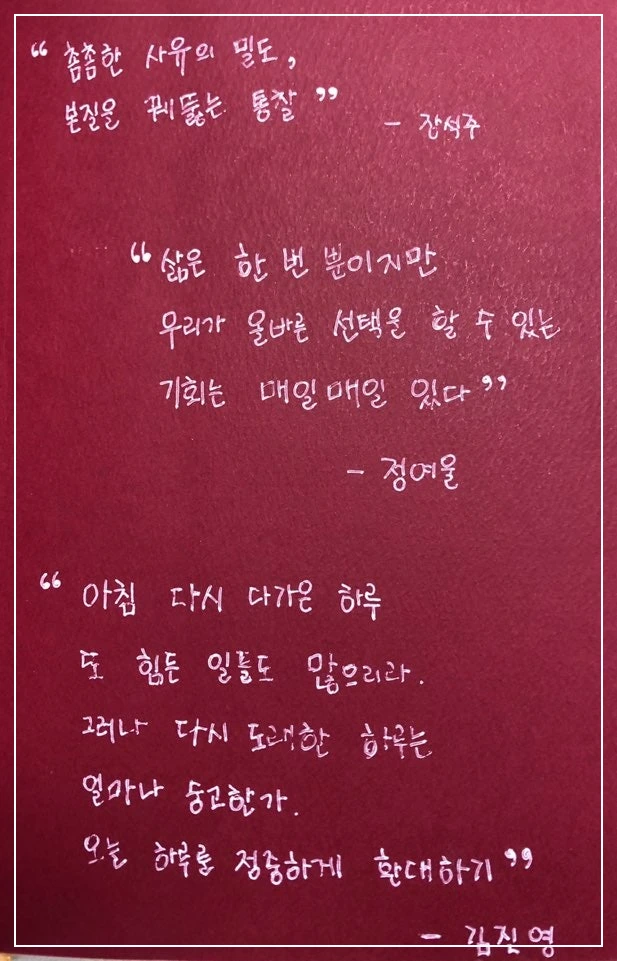 “ 촘촘한 사유의 밀도,
본질을 꿰뚫는 통찰 ”
- 장석주
“ 삶은 한 번 뿐이지만
우리가 올바른 선택을 할 수 있는
기회는 매일매일 있다 ”
- 정여울
“ 아침 다시 다가온 하루
또 힘든 일들도 많으리라.
그러나 다시 도래한 하루는
얼마나 숭고한가.
오늘 하루를 정중하게 환대하기 ”
- 김진영